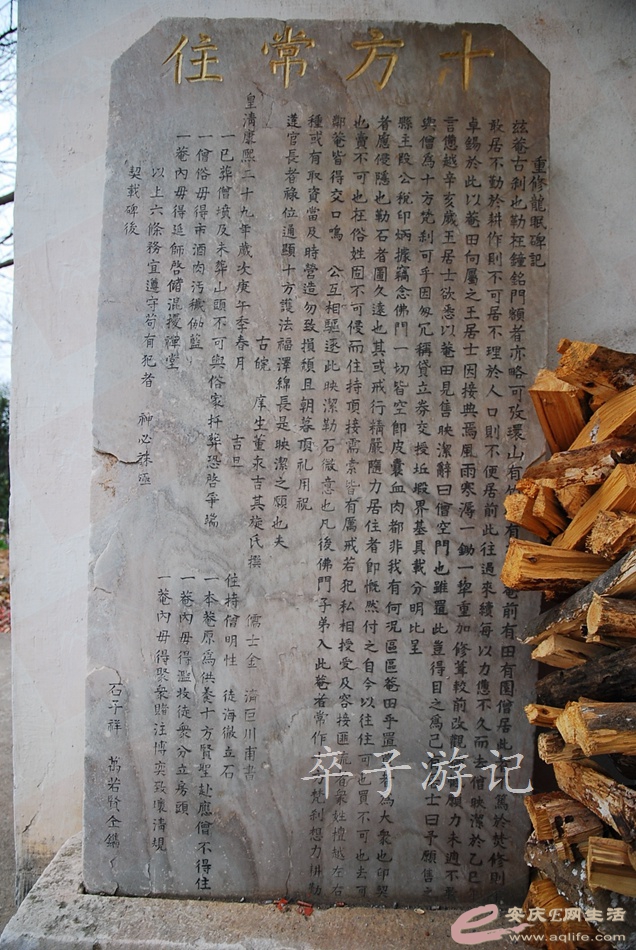 十方常住
重修龍眠碑記
兹菴古刹也勒在鐘銘門額者亦略可攷環山有 有 菴前有田有園僧居此 篤於焚修則
敢居不勤於耕作則不可居不理於人口則不便居前此往過來續每以力憊不久而去僧映潔於乙巳
卓錫於此以菴田向屬之王居士因接典焉風雨寒 一鋤一犂重加修葺較前改觀 願力未週不
言憊越辛亥歲王居士欲悉以菴田見售映潔辭曰僧空門也雖置此豈得目之爲己 士曰予願售之
與僧爲十方梵刹可乎因匆冗稱貸立券交授坵塅界基具載分明比呈
縣主段公稅印炳據竊念佛門一切皆空即皮囊血肉都非我有何况區區菴田乎置 者爲大衆也印契
者應侵隱也勒石者圖久遠也其或戒行精嚴隨力居住者即慨然付之自今以往住可也買不可也去可
也賣不可也在俗姓固不可侵而住持頂接需索皆有厲戒若犯私相授受及容接匪流者衆姓檀越左右
鄰菴皆得交口鳴 公互相驅逐此映潔勒石微意也凡後佛門子弟入此菴者常作 梵刹想力排勤
種或有取資當及時營造勿致損頹且朝暮頂礼用祝
遵官長者祿位通顯十方護法福澤綿長是映潔之願也夫
古皖 庠生董永吉其旋氏撰 儒士金 濟巨川甫書
皇清康熙二十九年歲次庚午季春月 吉旦 住持僧明性 徒海徹立石
一已葬僧墳及未葬山頭不可與俗家扦葬恐啓爭端 一本菴原爲供養十方賢聖赴應僧不得住
一僧俗毋得市酒肉汚穢伽藍 一菴內毋得濫收徒衆分立房頭
一菴內毋得延師啓館混擾禪堂 一菴內毋得聚衆賭注博奕致壞清規
以上六條務宜遵守苟有犯者 神必誅殛
契載碑後 石子祥 萬若賢仝鐫
卒子游记
安庆E网生活
www.aqlife.com